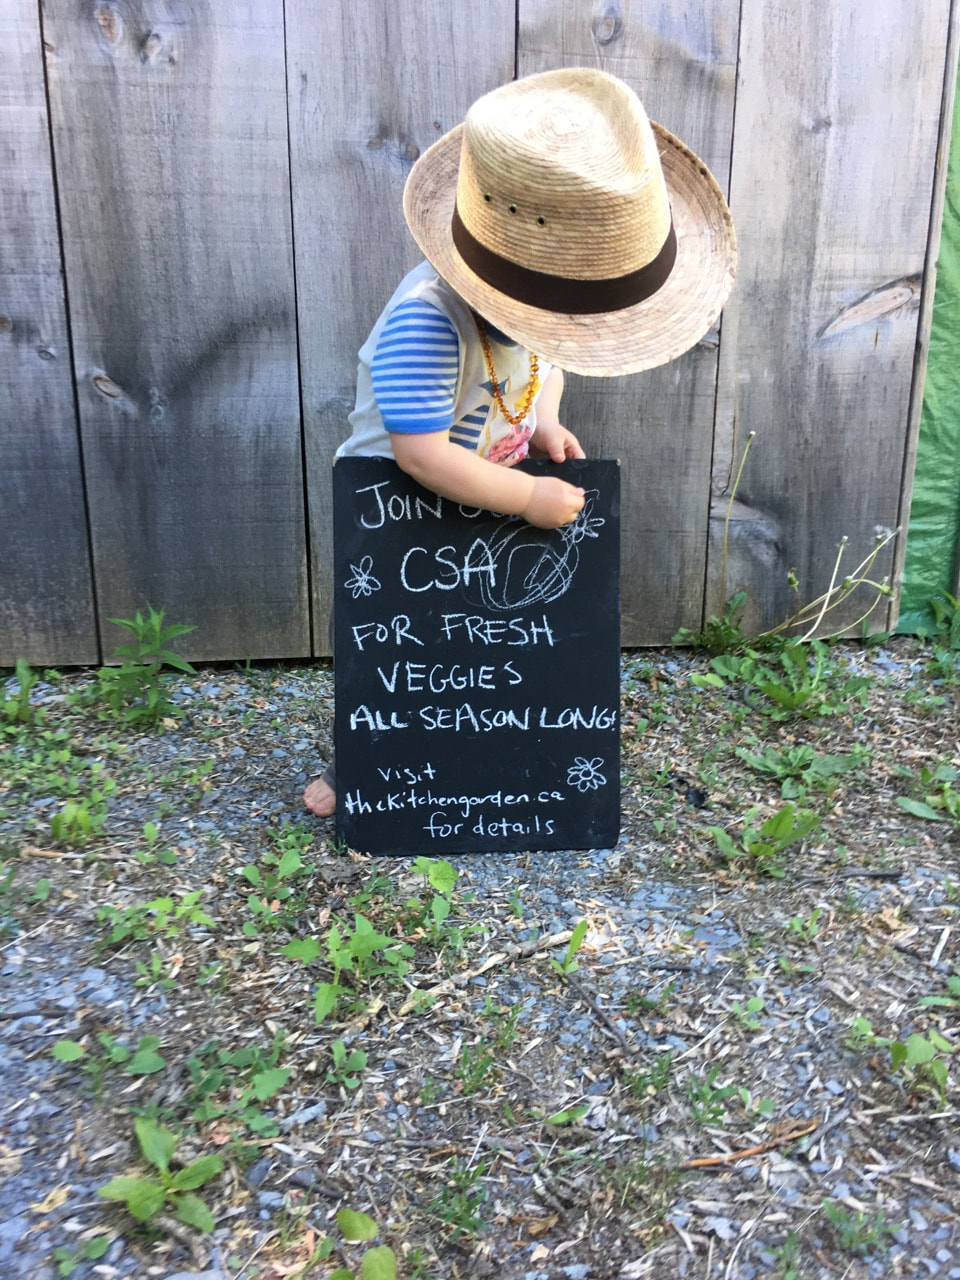 JOIN
CSA
FOR FRESH
VEGGIES
ALL SEASON LONG!
visit
thekitchengarden.ca
for details